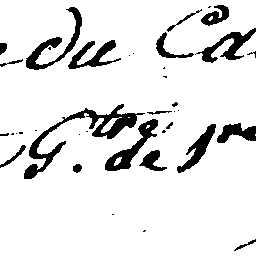 du Ca
G.tre de 1re